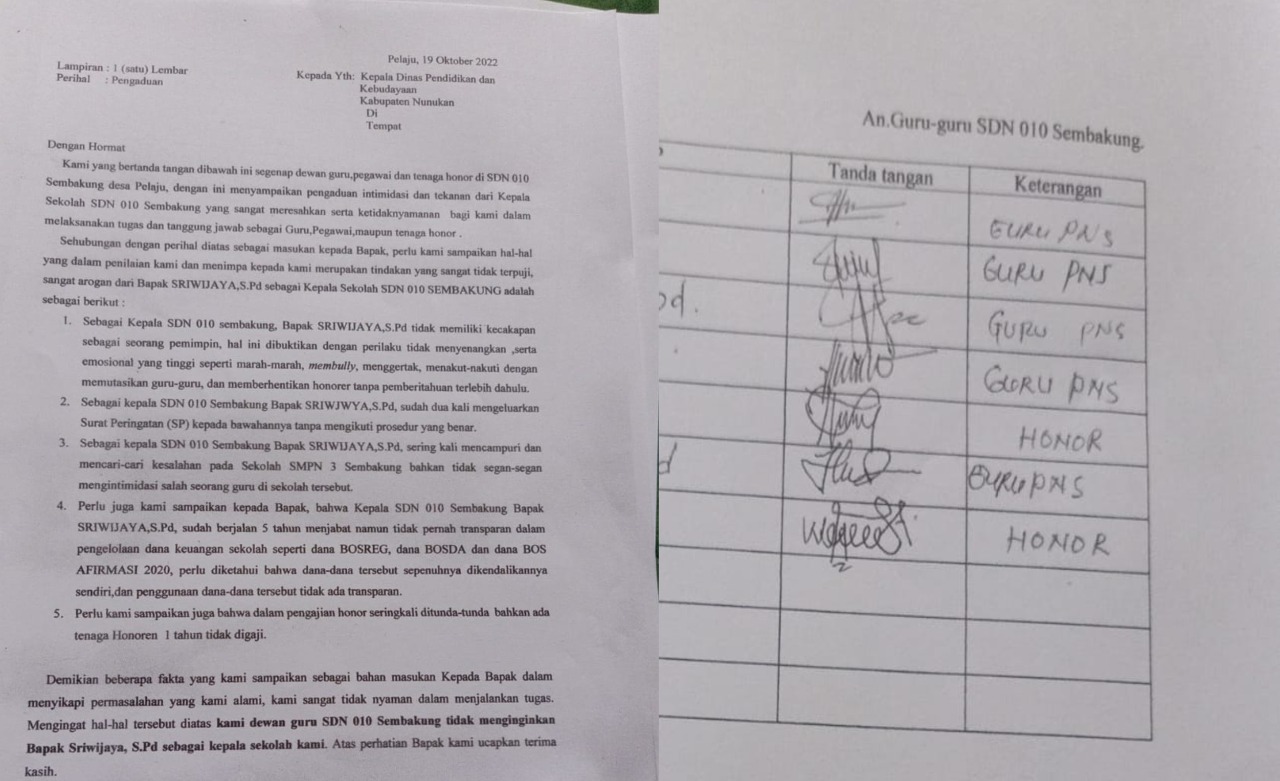 Pelaju, 19 Oktober 2022
Lampiran : 1 (satu) Lembar
Perihal : Pengaduan
Kepada Yth: Kepala Dinas Pendidikan dan
Kebudayaan
Kabupaten Nunukan
Di
Tempat
Dengan Hormat
Kami yang bertanda tangan dibawah ini segenap dewan guru,pegawai dan tenaga honor di SDN 010
Sembakung desa Pelaju, dengan ini menyampaikan pengaduan intimidasi dan tekanan dari Kepala
Sekolah SDN 010 Sembakung yang sangat meresahkan serta ketidaknyamanan bagi kami dalam
melaksanakan tugas dan tanggung jawab sebagai Guru,Pegawai,maupun tenaga honor .
Sehubungan dengan perihal diatas sebagai masukan kepada Bapak, perlu kami sampaikan hal-hal
yang dalam penilaian kami dan menimpa kepada kami merupakan tindakan yang sangat tidak terpuji,
sangat arogan dari Bapak SRIWIJAYA,S.Pd sebagai Kepala Sekolah SDN 010 SEMBAKUNG adalah
sebagai berikut :
1. Sebagai Kepala SDN 010 sembakung, Bapak SRIWIJAYA,S.Pd tidak memiliki kecakapan
sebagai seorang pemimpin, hal ini dibuktikan dengan perilaku tidak menyenangkan ,serta
emosional yang tinggi seperti marah-marah, membully, menggertak, menakut-nakuti dengan
memutasikan guru-guru, dan memberhentikan honorer tanpa pemberitahuan terlebih dahulu.
2. Sebagai kepala SDN 010 Sembakung Bapak SRIWJWYA,S.Pd, sudah dua kali mengeluarkan
Surat Peringatan (SP) kepada bawahannya tanpa mengikuti prosedur yang benar.
3. Sebagai kepala SDN 010 Sembakung Bapak SRIWIJAYA,S.Pd, sering kali mencampuri dan
mencari-cari kesalahan pada Sekolah SMPN 3 Sembakung bahkan tidak segan-segan
mengintimidasi salah seorang guru di sekolah tersebut.
4. Perlu juga kami sampaikan kepada Bapak, bahwa Kepala SDN 010 Sembakung Bapak
SRIWIJAYA,S.Pd, sudah berjalan 5 tahun menjabat namun tidak pernah transparan dalam
pengelolaan dana keuangan sekolah seperti dana BOSREG, dana BOSDA dan dana BOS
AFIRMASI 2020, perlu diketahui bahwa dana-dana tersebut sepenuhnya dikendalikannya
sendiri,dan penggunaan dana-dana tersebut tidak ada transparan.
5. Perlu kami sampaikan juga bahwa dalam pengajian honor seringkali ditunda-tunda bahkan ada
tenaga Honoren 1 tahun tidak digaji.
Demikian beberapa fakta yang kami sampaikan sebagai bahan masukan Kepada Bapak dalam
menyikapi permasalahan yang kami alami, kami sangat tidak nyaman dalam menjalankan tugas.
Mengingat hal-hal tersebut diatas kami dewan guru SDN 010 Sembakung tidak menginginkan
Bapak Sriwijaya, S.Pd sebagai kepala sekolah kami. Atas perhatian Bapak kami ucapkan terima
kasih.
An.Guru-guru SDN 010 Sembakung.
Tanda tangan Keterangan
GURU PNS
GURU PNS
GURU PNS
GURU PNS
HONOR
GURU PNS
HONOR